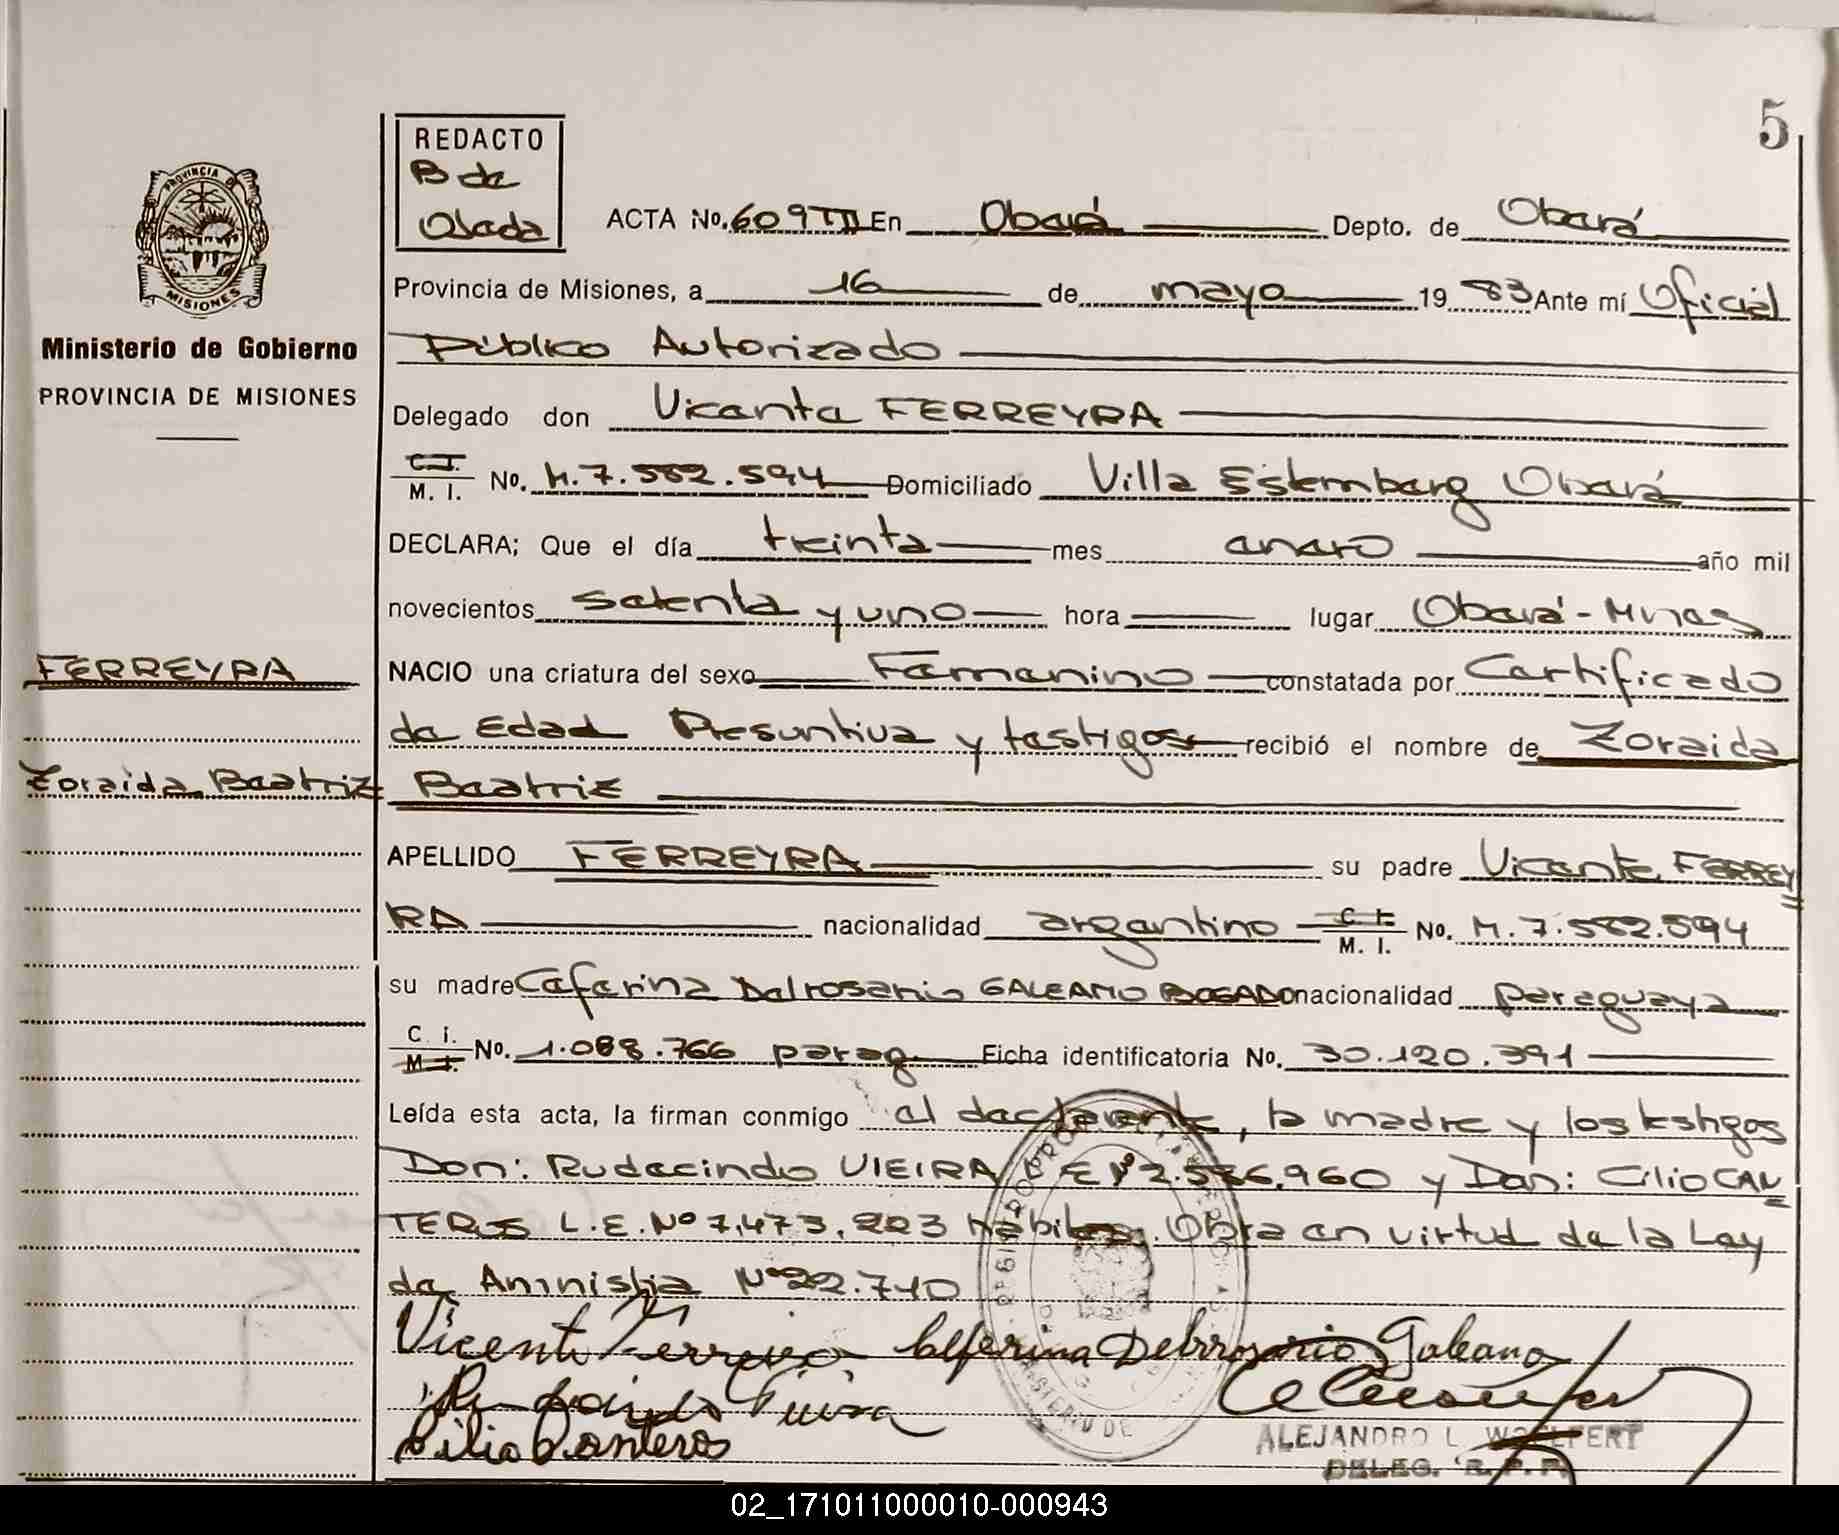 5
REDACTO
B de
Olado
ACTA No. 609 TII En Oberá Depto. de Oberá
PROVINCIA DE
MISIONES
Provincia de Misiones, a 16 de mayo 19 83 Ante mí Oficial
Ministerio de Gobierno
Público Autorizado
PROVINCIA DE MISIONES
Delegado don Vicente FERREYRA
C.I.
M. I. No. M.7.582.594 Domiciliado Villa Estemberg Oberá
DECLARA; Que el día treinta mes enero año mil
novecientos setenta y uno hora lugar Oberá - Mnes
FERREYRA
NACIO una criatura del sexo Femenino constatada por Certificado
de Edad Presuntiva y testigos recibió el nombre de Zoraida
Zoraida Beatriz
Beatriz
APELLIDO FERREYRA su padre Vicente FERREY
RA nacionalidad argentino C I. M. I. No. M.7.582.594
su madre Ceferina Delrosario GALEANO BOGADO nacionalidad paraguaya
C. i. M I. No. 1.088.766 parag Ficha identificatoria No. 30.120.391
Leída esta acta, la firman conmigo el declarante, la madre y los testigos
Don: Rudecindo VIEIRA L E Nº 2.586.960 y Don: Cilio CAN
TEROS L.E. Nº 7.473.223 habiles. Obra en virtud de la Ley
de Amnistia Nº 22.710
Vicente Ferreira Ceferina Delrrosario Galeano
Rudecindo Vieira
Cilio Canteros
ALEJANDRO L. WOELFERT
DELEG. R. P. P.
02_171011000010-000943